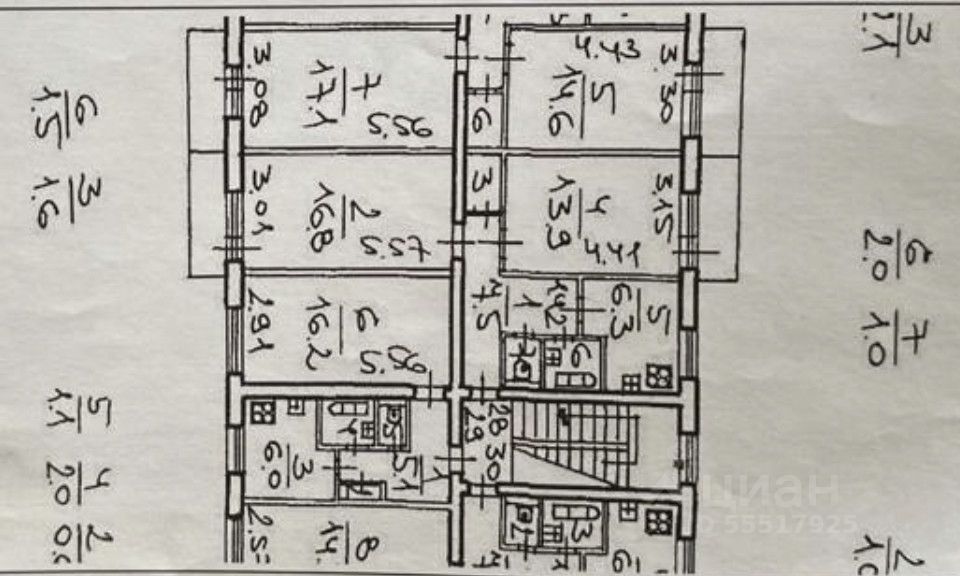 3
1.1
6
1.5
3
1.6
6
2.0
7
1.0
5
1.1
4
2.0
2
2
3.08
7
17.1
5.56
6
4.43
5
14.6
3.30
3.01
2
16.8
5.57
3
4
13.9
4.41
3.15
2.91
6
16.2
5.58
1
7.5
1.42
5
6.3
7
6
4
5
3
6.0
5.1
1
28
29
30
2.5
8
14.
2
3
6
циан
55517925